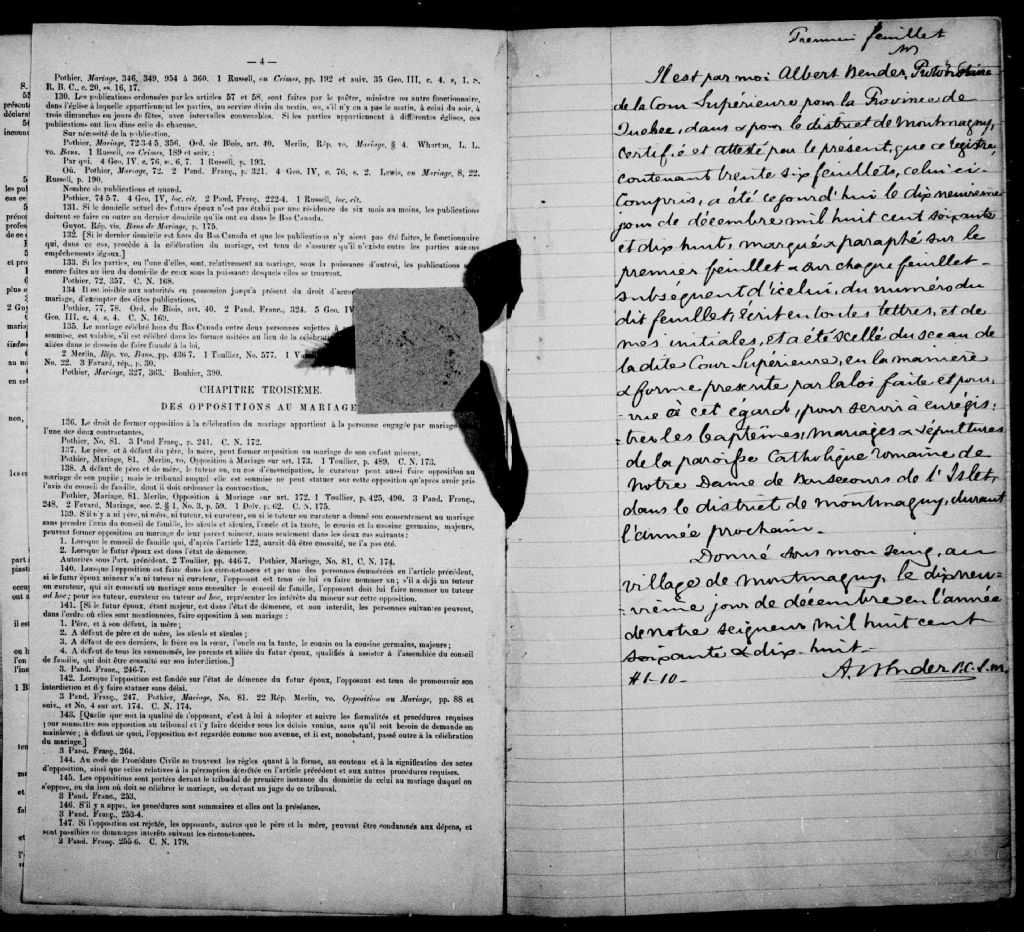 — 4 —
Pothier, Mariage, 346, 349, 954 à 360. 1 Russell, on Crimes, pp. 192 et suiv. 35 Geo. III, c. 4. s, 1. S.
R. B. C., c. 20, ss. 16, 17.
130. Les publications ordonnées par les articles 57 et 58, sont faites par le prêtre, ministre ou autre fonctionnaire,
dans l'église à laquelle appartiennent les parties, au service divin du matin, ou, s'il n'y en a pas le matin, à celui du soir, à
trois dimanches ou jours de fêtes, avec intervalles convenables. Si les parties appartiennent à différentes églises, ces
publications ont lieu dans celle de chacune.
Sur nécessité de la publication.
Pothier, Mariage, 72-3-4 5, 356. Ord. de Blois, art. 40. Merlin, Rép. vo. Mariage, § 4. Wharton, L. L.
vo. Bans. 1 Russell, on Crimes, 189 et suiv. :
Par qui. 4 Geo. IV. c. 76, s. 6, 7. 1 Russell, p. 193.
Où. Pothier, Mariage, 72. 2 Pand. Franç., p. 321. 4 Geo. IV, c. 76, s. 2. Lewis, on Mariage, 8, 22.
Russell, p. 190.
Nombre de publications et quand.
Pothier, 74 5-7. 4 Geo. IV, loc. cit. 2 Pand. Franç. 222-4. 1 Russell, loc. cit.
131. Si le domicile actuel des futurs époux n'est pas établi par une résidence de six mois au moins, les publications
doivent se faire en outre au dernier domicile qu'ils ont eu dans le Bas Canada.
Guyot. Rép. vis. Bans de Mariage, p. 175.
132. [Si le dernier domicile est hors du Bas Canada et que les publications n'y aient pas été faites, le fonctionnaire
qui, dans ce cas, procède à la célébration du mariage, est tenu de s'assurer qu'il n'existe entre les parties aucuns
empêchements légaux.]
133. Si les parties, ou l'une d'elles, sont, relativement au mariage, sous la puissance d'autrui, les publications
encore faites au lieu du domicile de ceux sous la puissance desquels elles se trouvent.
Pothier, 72, 357. C. N. 168.
134 Il est loisible aux autorités en possession jusqu'à présent du droit d'acco
mariage, d'exempter des dites publications.
Pothier, 77, 78. Ord. de Blois, art. 40. 2 Pand. Franç., 324. 5 Geo. IV
Geo. III, c. 4, s. 4. C. N. 169.
135. Le mariage célébré hors du Bas Canada entre deux personnes sujettes à
soumise, est valable, s'il est célébré dans les formes usitées au lieu de la célébra
aliées dans le dessein de faire fraude à la loi,
2 Merlin, Rép. vo. Bans, pp. 436 7. 1 Toullier, No. 577. 1 Va
No. 22. 3 Favard, rép., p. 30.
Pothier, Mariage, 327, 363. Bouhier, 390.
CHAPITRE TROISIÈME.
DES OPPOSITIONS AU MARIAGE
136. Le droit de former opposition à la célébration du mariage appartient à la personne engagée par mariage
l'une des deux contractantes.
Pothier, No. 81. 3 Pand Franç., p. 241. C. N. 172.
137. Le père, et à défaut du père, la mère, peut former opposition au mariage de son enfant mineur.
Pothier, Mariage, 81. Merlin, vo. Opposition à Mariage sur art. 173. 1 Toullier, p. 489. C. N. 173.
138. A défaut de père et de mère, le tuteur ou, au cas d'émancipation, le curateur peut aussi faire opposition au
mariage de son pupile ; mais le tribunal auquel elle est soumise ne peut statuer sur cette opposition qu'après avoir pris
l'avis du conseil de famille, dont il doit ordonner la convocation.
Pothier, Mariage, 81. Merlin, Opposition à Mariage sur art. 172. 1 Toullier, p. 425, 490. 3 Pand. Franç.,
248. 2 Favard, Mariage, sec. 2. § 1, No. 3, p. 59. 1 Delv. p. 62. C. N. 175.
139. S'il n'y a ni père, ni mère, ni tuteur, ni curateur, ou si le tuteur ou curateur a donné son consentement au mariage
sans prendre l'avis du conseil de famille, les aïeuls et aïeules, l'oncle et la tante, le cousin et la cousine germains, majeurs,
peuvent former opposition au mariage de leur parent mineur, mais seulement dans les deux cas suivants :
1. Lorsque le conseil de famille qui, d'après l'article 122, aurait dû être consulté, ne l'a pas été.
2. Lorsque le futur époux est dans l'état de démence.
Autorités sous l'art. précédent. 2 Toullier, pp. 446 7. Pothier, Mariage, No. 81, C. N. 174.
140. Lorsque opposition est faite dans les circonstances et par une des personnes énumérées en l'article précédent,
si le futur époux mineur n'a ni tuteur ni curateur, l'opposant est tenu de lui en faire nommer un ; s'il a déjà un tuteur
ou curateur, qui ait consenti au mariage sans consulter le conseil de famille, l'opposant doit lui faire nommer un tuteur
ad hoc ; pour les tuteur, curateur ou tuteur ad hoc, représenter les intérêts du mineur sur cette opposition.
141. [Si le futur époux, étant majeur, est dans l'état de démence, et non interdit, les personnes suivantes peuvent,
dans l'ordre où elles sont mentionnées, faire opposition à son mariage :
1. Père, et à son défaut, la mère ;
2. A défaut de père et de mère, les aïeuls et aïeules ;
3. A défaut de ces derniers, le frère ou la sœur, l'oncle ou la tante, le cousin ou la cousine germains, majeurs ;
4. A défaut de tous les susnommés, les parents et alliés du futur époux, qualifiés à assister à l'assemblée du conseil
de famille, qui doit être consulté sur son interdiction.]
3. Pand. Franç., 246-7.
142. Lorsque l'opposition est fondée sur l'état de démence du futur époux, l'opposant est tenu de promouvoir son
interdiction et d'y faire statuer sans délai.
3 Pand. Franç., 247. Pothier, Mariage, No. 81. 22 Rép. Merlin, vo. Opposition au Mariage, pp. 88 et
suiv., et No, 4 sur art. 174. C. N. 174.
143. [Quelque soit la qualité de l'opposant, c'est à lui à adopter et suivre les formalités et procédures requises
pour soumettre son opposition au tribunal et l'y faire décider sous les délais voulus, sans qu'il soit besoin de demande en
mainlevée ; à défaut de quoi, l'opposition est regardée comme non avenue, et il est, nonobstant, passé outre à la célébration
du mariage.]
3 Pand. Franç., 264.
144. Au code de Procédure Civile se trouvent les règles quant à la forme, au contenu et à la signification des actes
d'opposition, ainsi que celles relatives à la péremption décrétée en l'article précédent et aux autres procédures requises.
145. Les oppositions sont portées devant le tribunal de première instance du domicile de celui au mariage duquel on
s'oppose, ou du lieu où doit se célébrer le mariage, ou devant un juge de ce tribunal.
3 Pand. Franç., 253.
146. S'il y a appel, les procédures sont sommaires et elles ont la préséance.
3 Pand. Franç., 253-4.
147. Si l'opposition est rejetée, les opposants, autres que le père et la mère, peuvent être condamnés aux dépens, et
sont passibles de dommages intérêts suivant les circonstances.
3 Pand. Franç. 255-6. C. N. 179.
Premier feuillet
Il est par moi Albert Bender, Protonotaire
de la Cour Supérieure pour la Province de
Québec, dans & pour le district de Montmagny,
certifié et attesté par le présent, que ce registre,
contenant trente six feuillets, celui-ci
compris, a été cejourd'hui le dix neuvième
jour de décembre mil huit cent soixante
et dix huit, marqué & paraphé sur le
premier feuillet & sur chaque feuillet
subséquent d'icelui, du numéro du
dit feuillet, écrit en toutes lettres, et de
mes initiales, et a été scellé du sceau de
la dite Cour Supérieure, en la manière
& forme présente par la loi faite et pour-
-vue à cet égard, pour servir à enrégis-
-trer les baptêmes, mariages & sépultures
de la paroisse Catholique romaine de
Notre Dame de Bonsecours de l'Islet,
dans le district de Montmagny, durant
l'année prochain.
Donné sous mon seing, au
village de Montmagny, le dix neu-
-vième jour de décembre en l'année
de notre seigneur mil huit cent
soixante & dix-huit.
#1-10- A. Bender P.C.S.M.